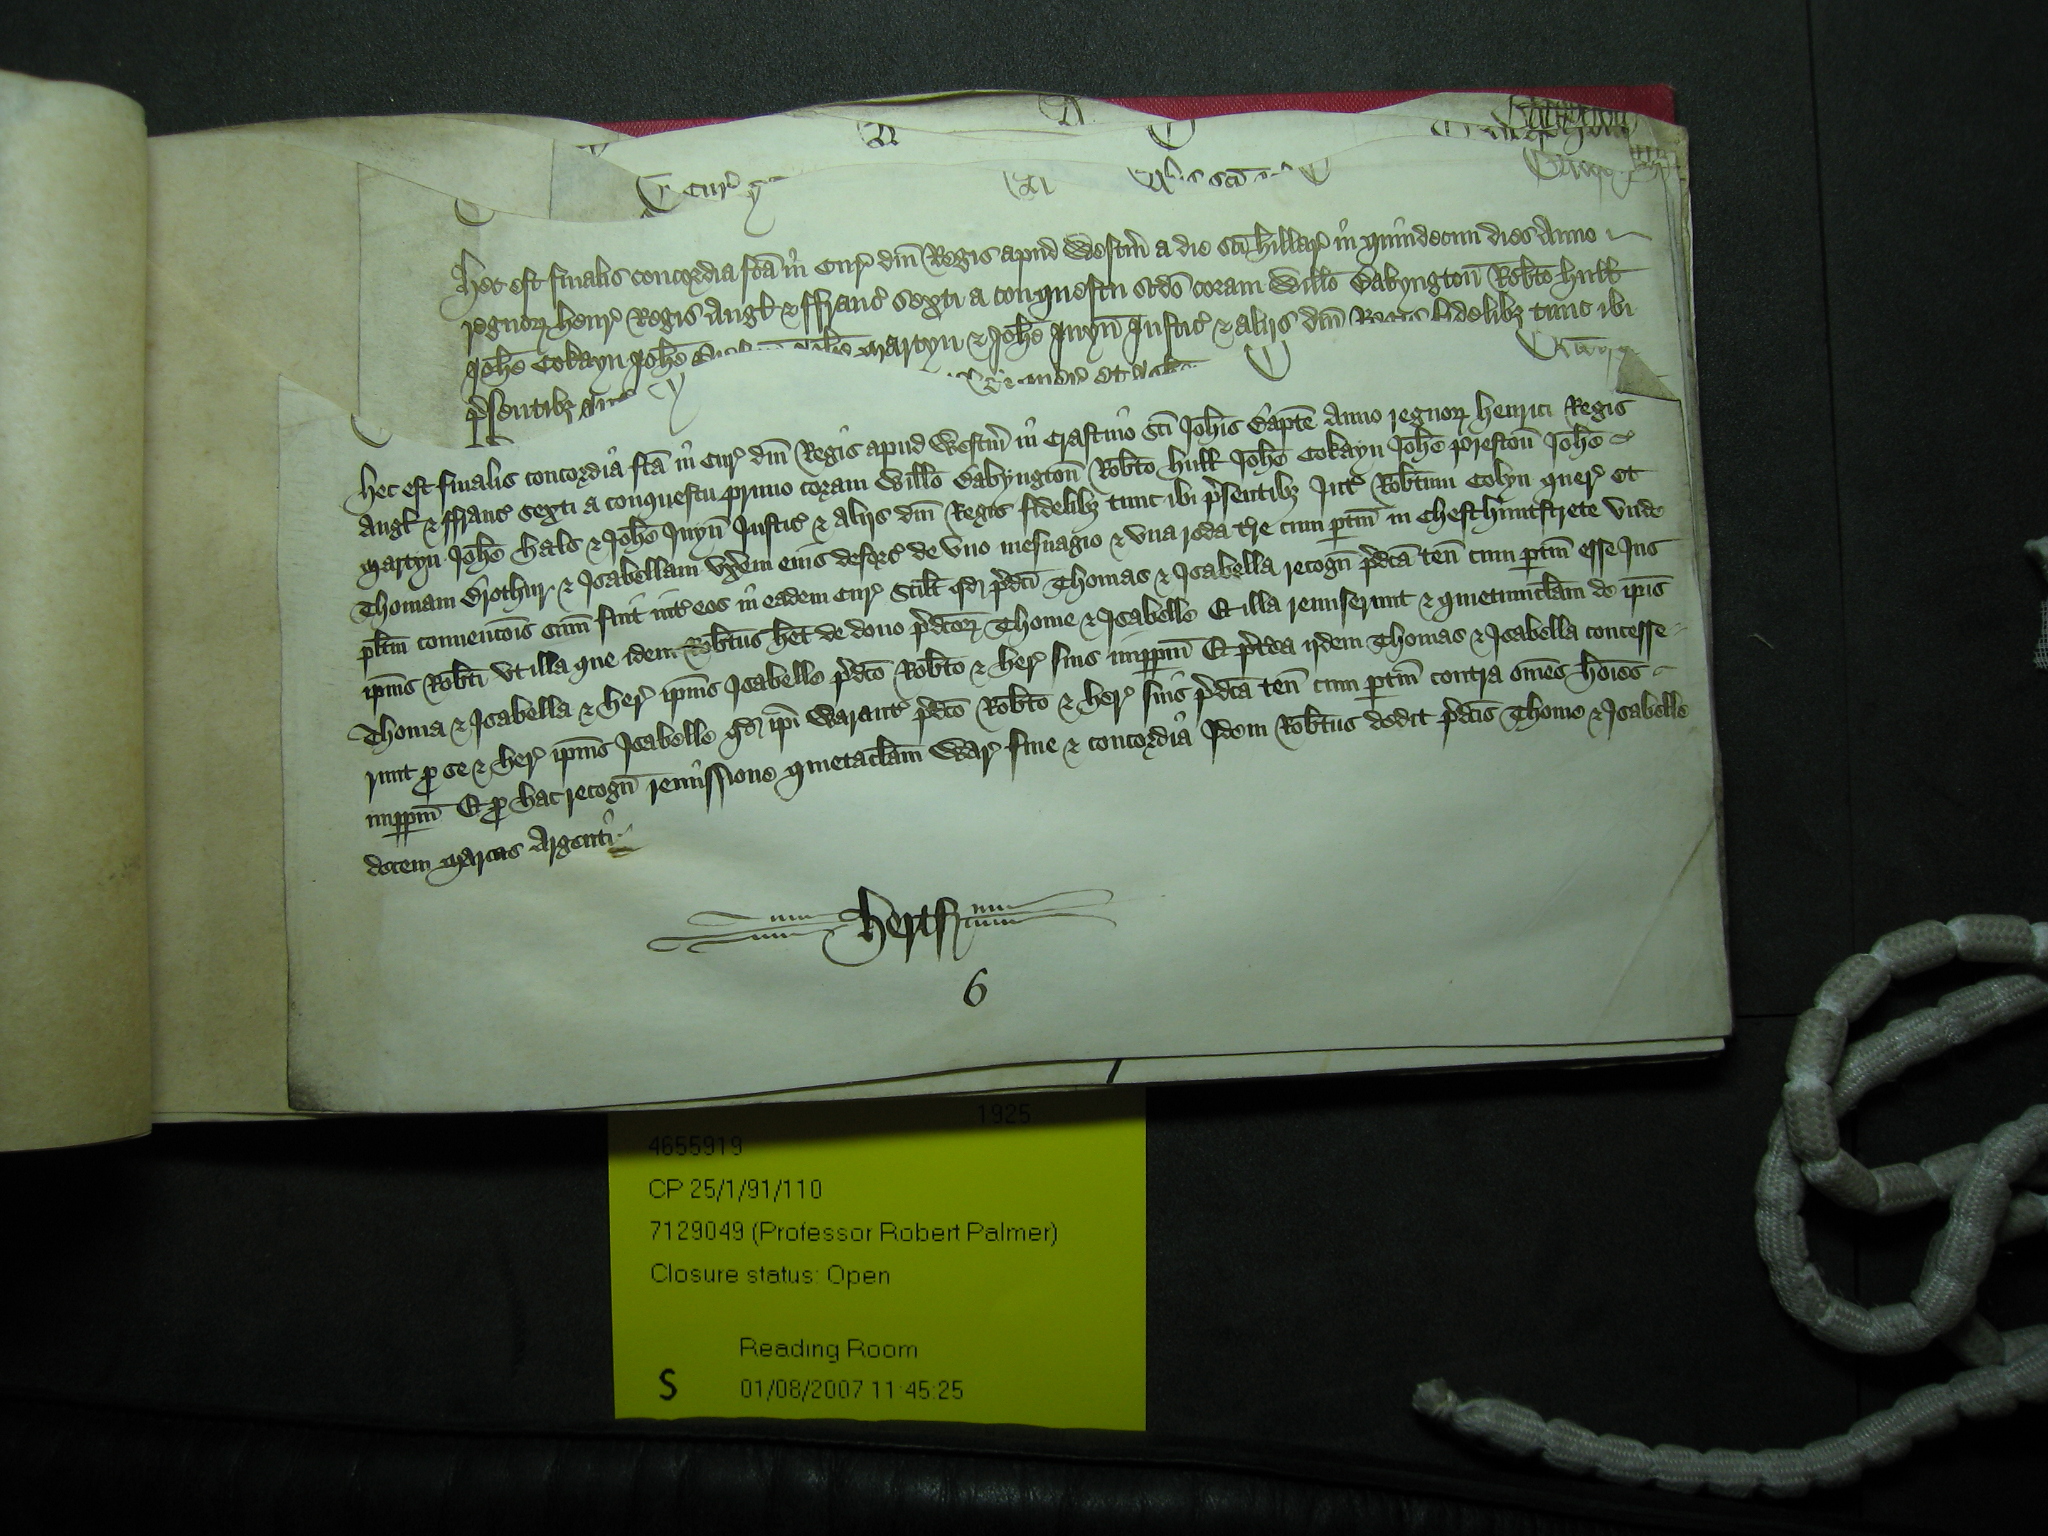 Hec est finalis concordia fc̄a in Cur̛ dn̄i Regis apud Westm̄ a die sc̄i Hillar̛ in quindecim dies Anno
regnoꝝ Henr̛ Regis Angl̛ & ffranc̛ sexti a conquestu scd̄o coram Will̄o Babyngton̄ Rob̄to Hull
Joh̄e Cokayn Joh̄e Martyn & Joh̄e Juyn Justic̛ & aliis dn̄i Regis fidelibꝫ tunc ibi
p̄sentibꝫ
Hec est finalis concordia fc̄a in Cur̛ dn̄i Regis apud Westm̄ in Crastino sc̄i Joh̄is Bapt̄e Anno regnoꝝ Henrici Regis
Angl̛ & ffranc̛ sexti a conquestu primo coram Will̄o Babyngton̄ Rob̄to Hull Joh̄e Cokayn Joh̄e Preston̄ Joh̄e
Martyn Joh̄e Hals & Joh̄e Juyn Justic̛ & aliis dn̄i Regis fidelibꝫ tunc ibi p̄sentibꝫ Int̛ Rob̄tum Colyn quer̛ et
Thomam Brothur & Isabellam vx̄em eius deforc̛ de vno mesuagio & vna roda tr̄e cum ptin̄ in Chesthuntstrete vnde
pl̄itm conuenc̄ois sum̄ fuit int̛ eos in eadem Cur̛ Scil̄t qd̛ p̄dc̄i Thomas & Isabella recogn̄ p̄dc̄a ten̄ cum ptin̄ esse Jus
ip̄ius Rob̄ti vt illa que idem Rob̄tus h̄et de dono p̄dc̄oꝝ Thome & Isabelle Et illa remiserunt & quietumclam̄ de ip̄is
Thoma & Isabella & her̛ ip̄ius Isabelle p̄dc̄o Rob̄to & her̛ suis imp̲p̲m̄ Et p̄t̄ea ijdem Thomas & Isabella concesse-
runt p̲ se & her̛ ip̄ius Isabelle qd̛ ip̄i Warant̛ p̄dc̄o Rob̄to & her̛ suis p̄dc̄a ten̄ cum ptin̄ contra om̄es ho̅ies
imp̲p̲m̄ Et p̲ hac recogn̄ remissione quietaclam̄ War̛ fine & concordia Idem Rob̄tus dedit p̄dc̄is Thome & Isabelle
decem marcas Argenti
Hertf
6
1925
4655919
CP 25/1/91/110
7129049 (Professor Robert Palmer)
Closure status: Open
Reading Room
S 01/08/2007 11:45:25